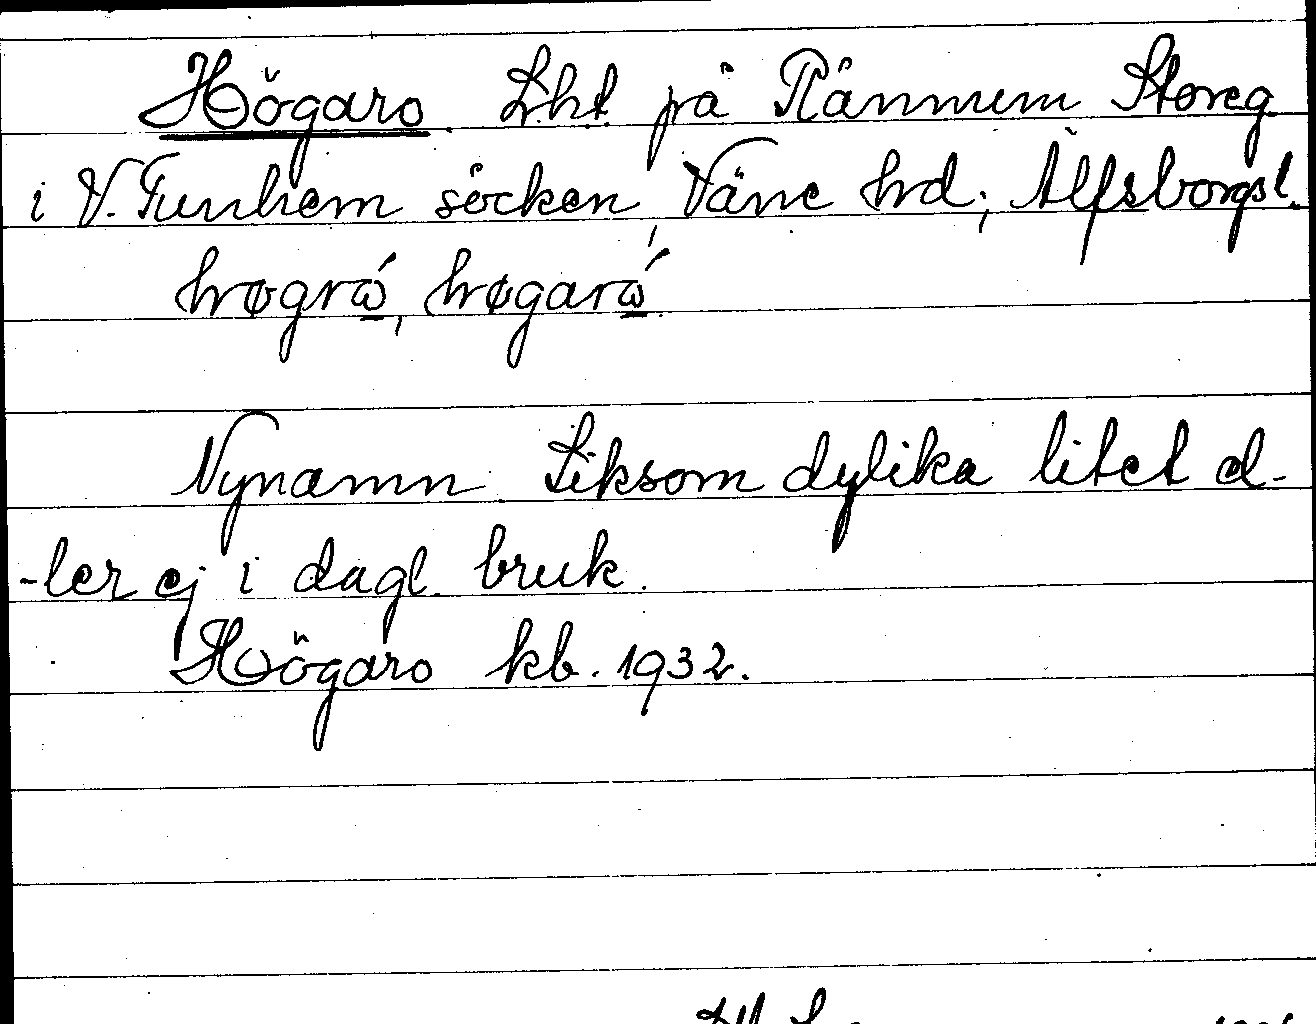 Högaro. Lht på Rånnum Storeg.
i V. Tunhem socken, Väne hd; Älfsborgsl.
høgrώ, høgarώ.
Nynamn. Liksom dylika litet el-
-ler ej i dagl. bruk.
Högaro kb. 1932.